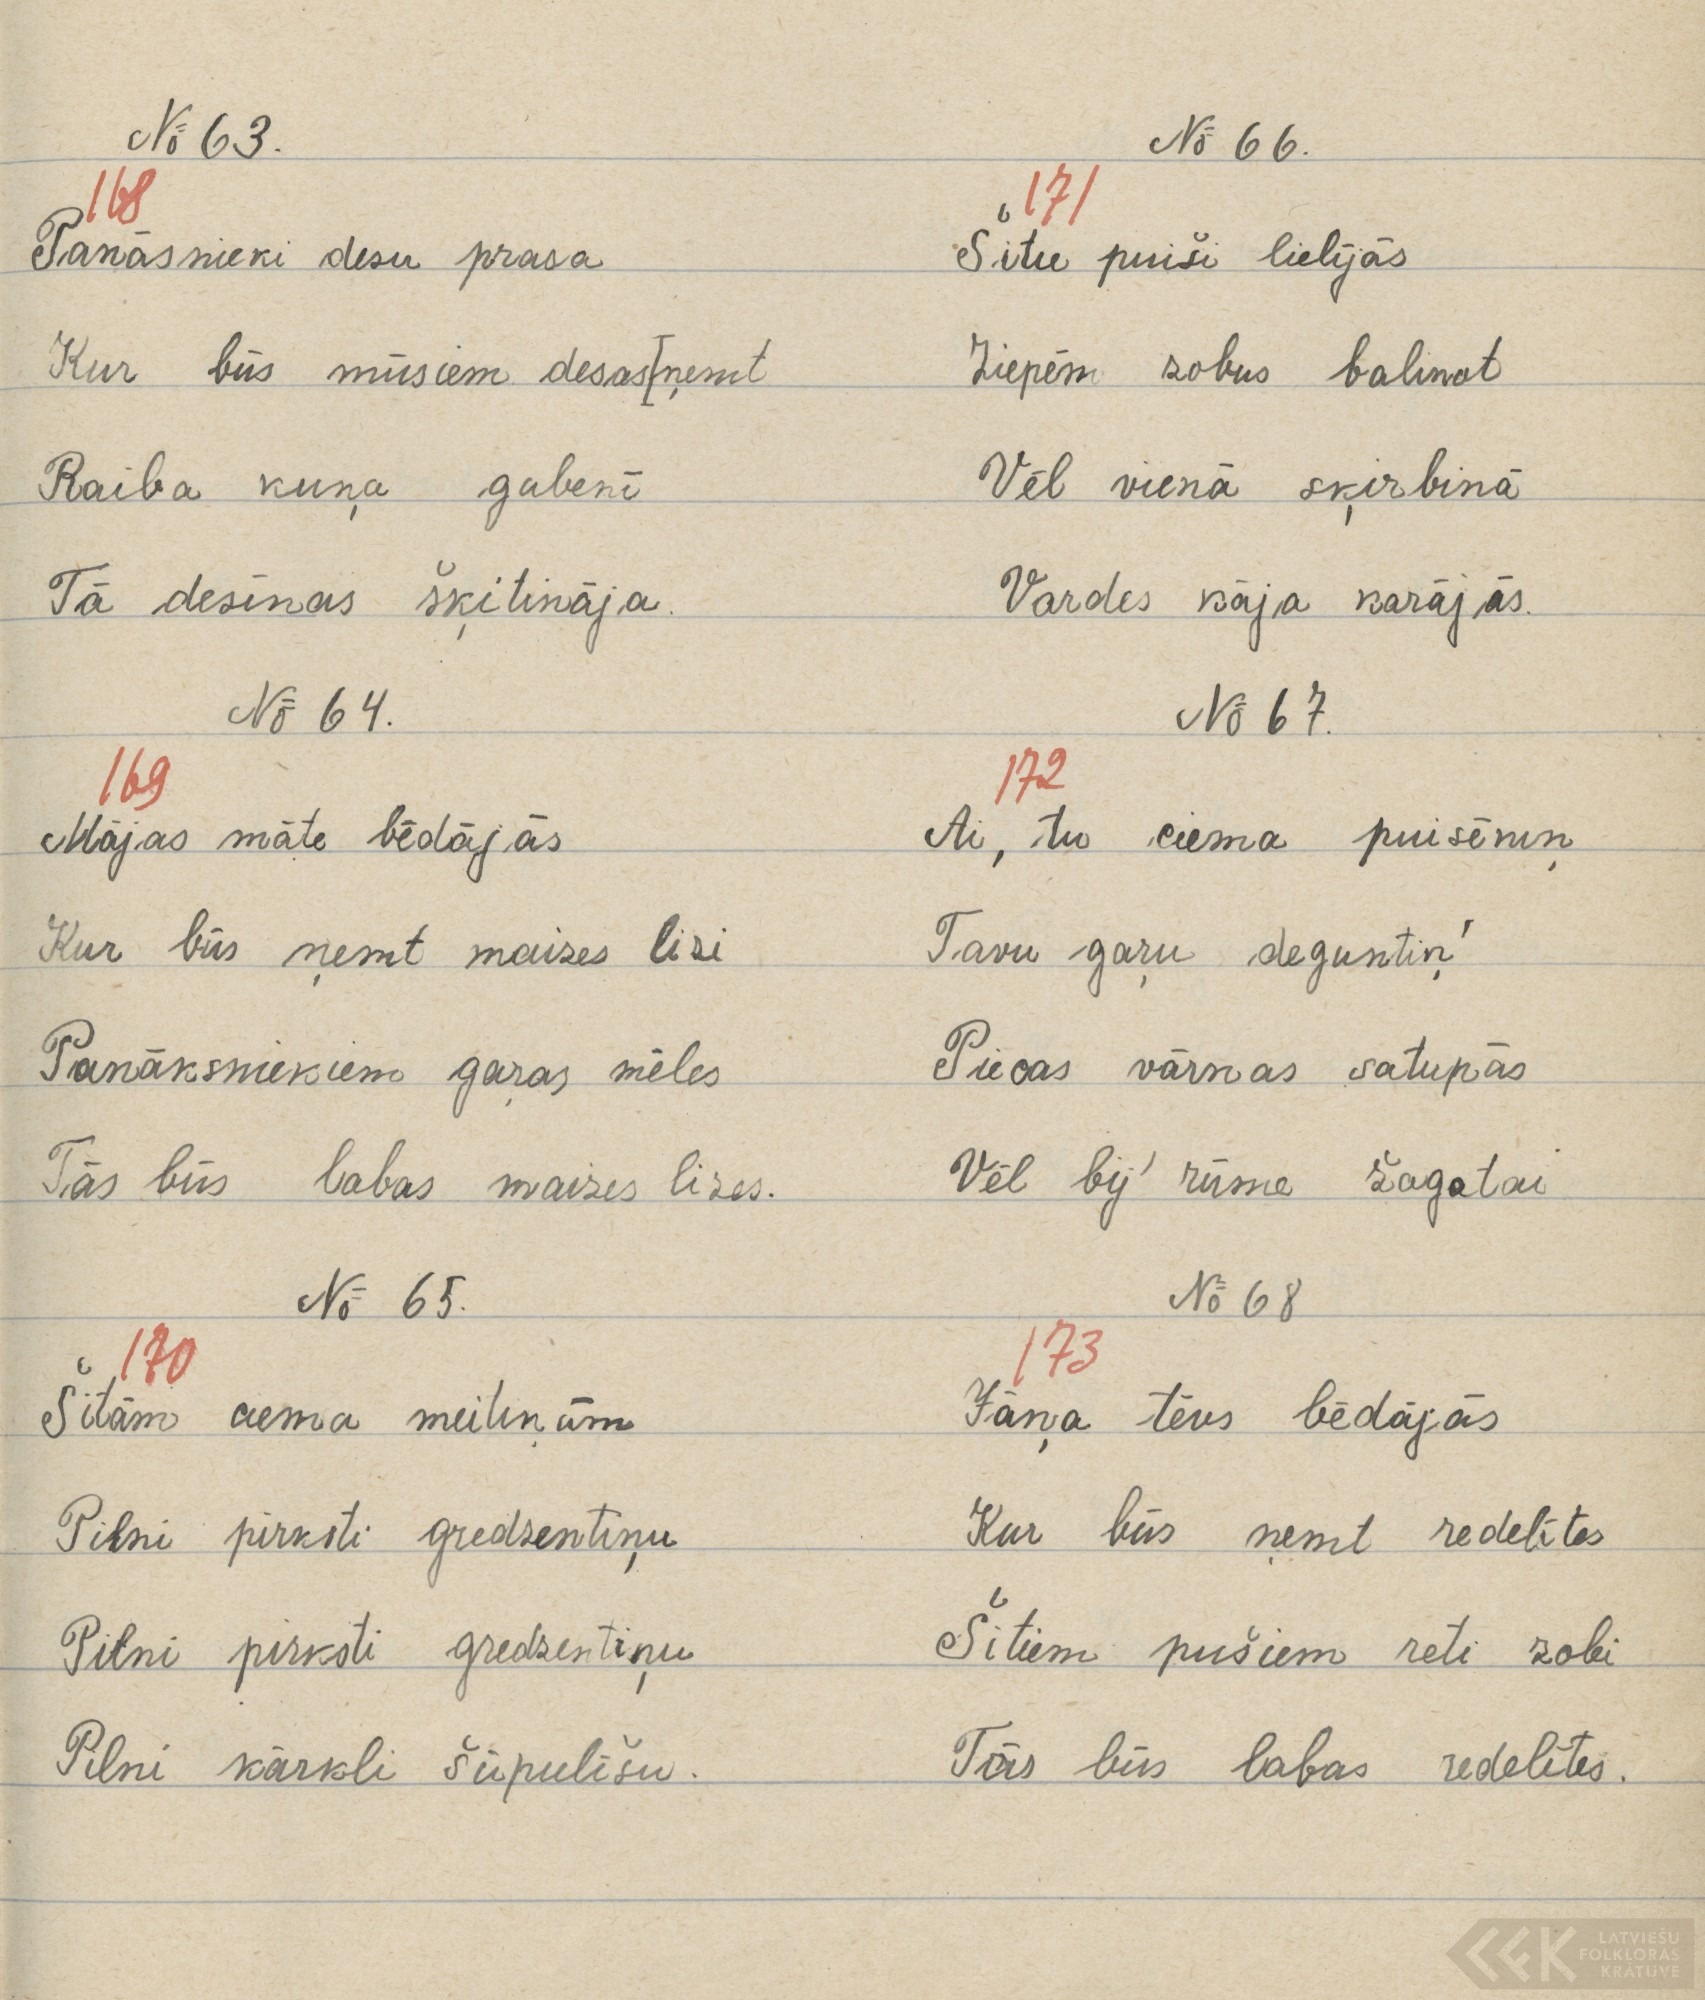 № 63.
168
Panāsnieki desu prasa
Kur būs mūsiem desas[ņemt
Raiba kuņa gubenī
Tā desinas šķitināja.
№ 64.
169
Mājas māte bēdājās
Kur būs ņemt maizes lizi
Panāksniekiem gaŗas mēles
Tās būs labas maizes lizes.
№ 65.
170
Šitām ciema meitiņām
Pilni pirksti gredzentiņu
Pilni pirksti gredzentiņu
Pilni kārkli šūpulīšu.
№ 66.
171
Šitie puiši lielījās
Ziepēm zobus balinot
Vēl vienā sķirbinā
Vardes kāja karājās.
№ 67.
172
Ai, tu ciema puisēniņ
Tavu gaŗu deguntiņ'
Piecas vārnas satupās
Vēl bij' rūme žagatai
№ 68
173
Jāņa tēvs bēdājās
Kur būs ņemt redelītes
Šitiem pušiem reti zobi
Tās būs labas redelītes.
LATVIEŠU
FOLKLORAS
KRĀTUVE